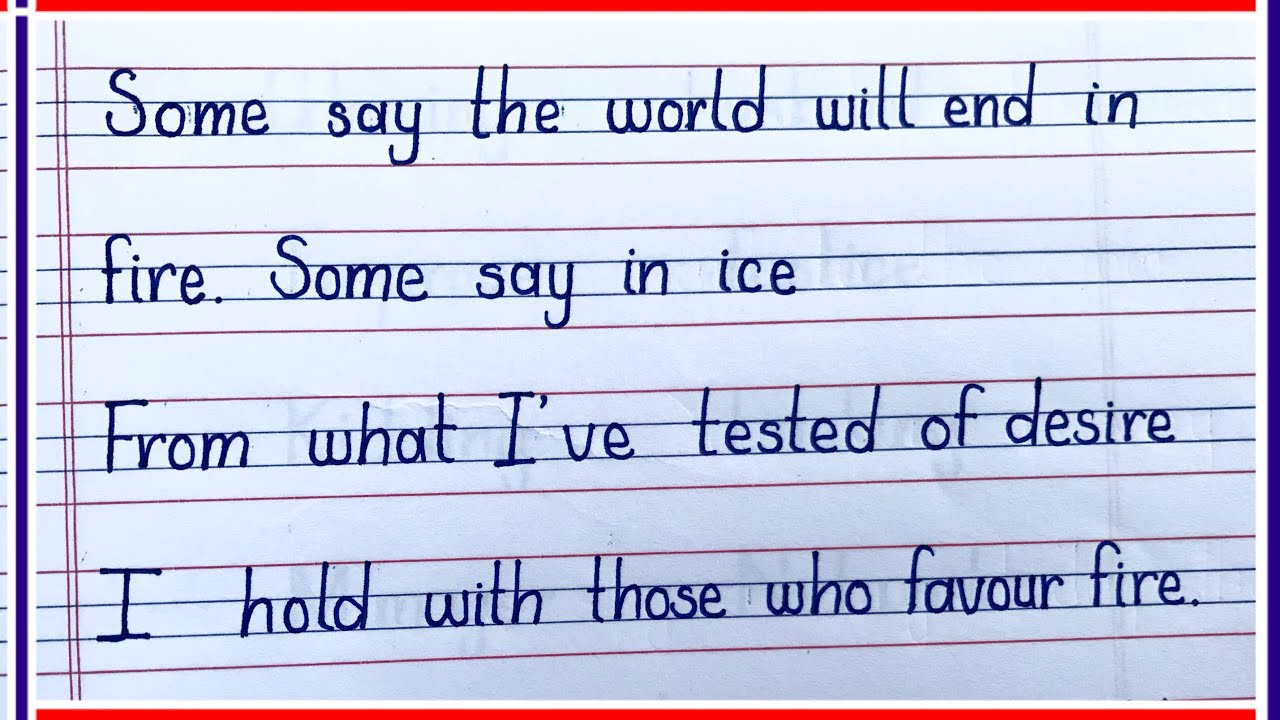 Some say the world will end in
fire. Some say in ice
From what I've tested of desire
I hold with those who favour fire.